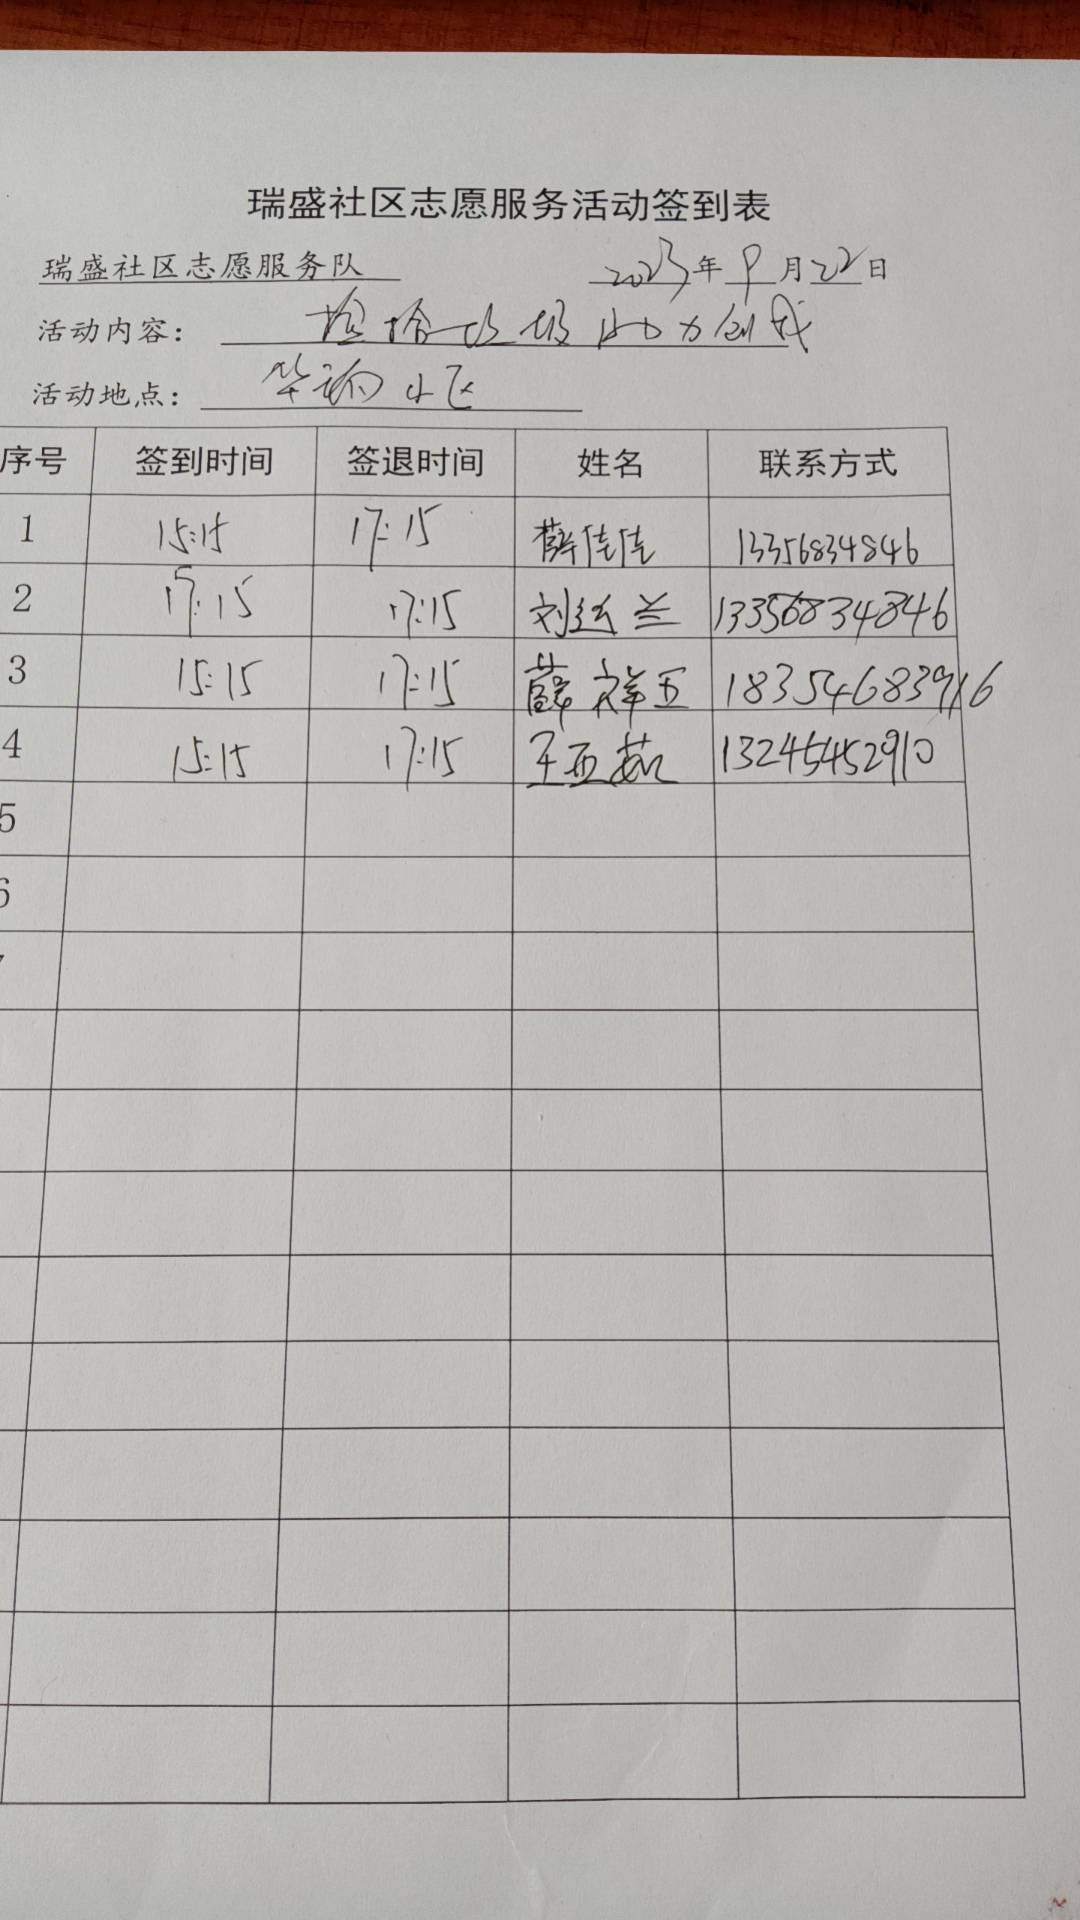 瑞盛社区志愿服务活动签到表
瑞盛社区志愿服务队 2023年9月22日
活动内容： 捡拾垃圾 助力创城
活动地点： 小区
序号 签到时间 签退时间 姓名 联系方式
1 15:15 17:15 薛佳佳 13356834846
2 15:15 17:15 刘兰 13356834846
3 15:15 17:15 薛祥玉 18354683916
4 15:15 17:15 王亚茹 13245452910
5
6